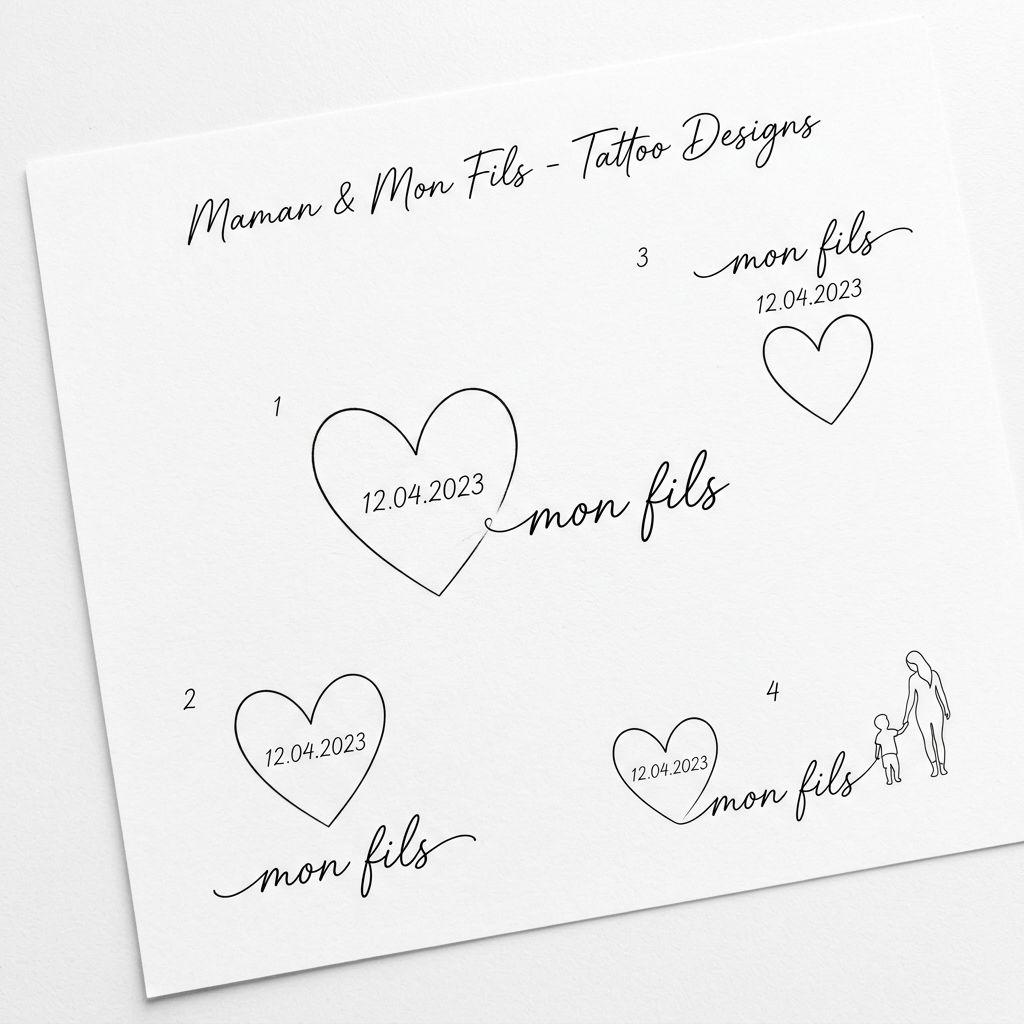 Maman & Mon Fils - Tattoo Designs
3
mon fils
12.04.2023
1
12.04.2023
mon fils
2
12.04.2023
mon fils
4
12.04.2023
mon fils